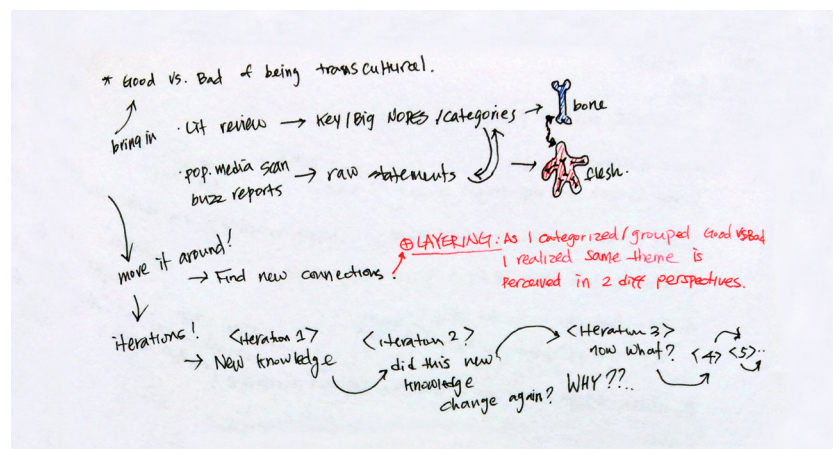 * Good vs. Bad of being transcultural.
bring in
· Lit review → Key/Big NODES/categories → bone
· pop. media scan
buzz reports → raw statements → flesh.
move it around!
→ Find new connections!
⊕ LAYERING: As I categorized/grouped Good vs Bad
I realized same theme is
perceived in 2 diff perspectives.
iterations!
<iteration 1>
→ New knowledge
<iteration 2>
did this new
knowledge
change again?
<iteration 3>
now what?
WHY??..
<4> <5>..